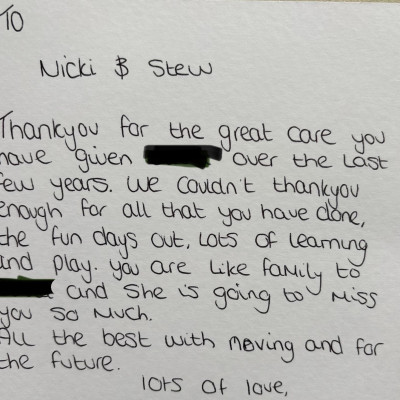 To
Nicki & Stew
Thankyou for the great care you
have given over the last
few years. We couldn't thankyou
enough for all that you have done,
the fun days out, lots of learning
and play. you are like family to
and she is going to miss
you so much.
All the best with moving and for
the future.
lots of love,